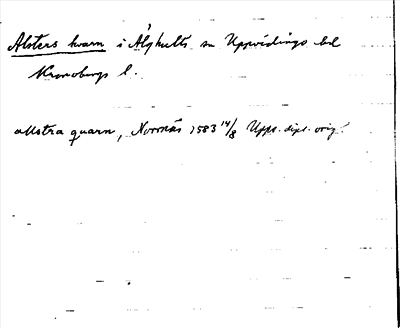 Alsters kvarn i Älghults sn Uppvidinge hd
Kronobergs l.
allstra quarn, Norrnäs 1583 14/8 Upps. dipl. orig.